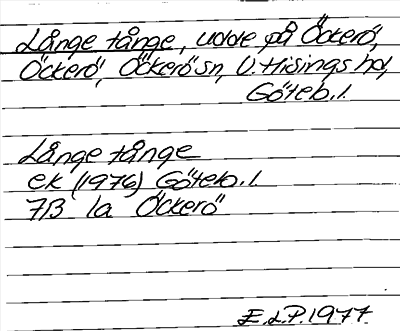 Långe tånge, udde på Öckerö,
Öckerö, Öckerö sn, V. Hisings hd,
Göteb. l.
Långe tånge
ek (1976) Göteb. l.
7B 1a Öckerö
E.L.P. 1977.